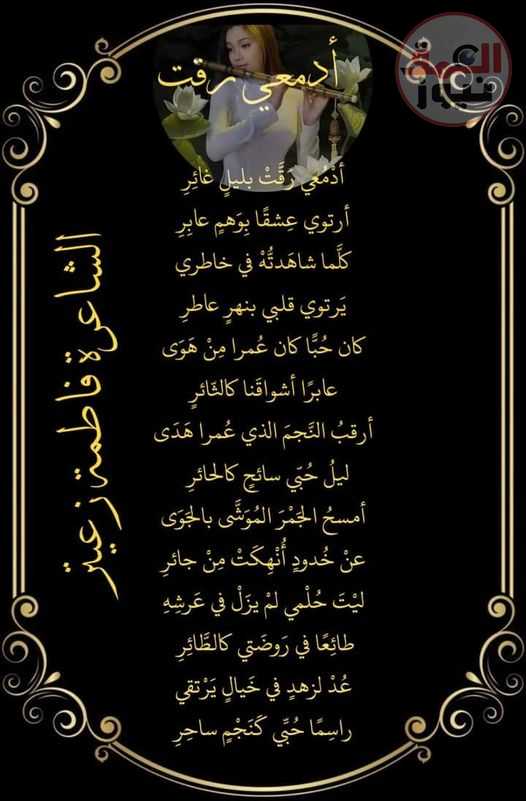 القمة نيوز
أدمعي رقت
أدْمُعي رَقَّتْ بليلٍ غائِرِ
أرتوي عِشقًا بِوَهمٍ عابِرِ
كلَّما شاهَدتُّهْ في خاطري
يَرتوي قلبي بنهرٍ عاطرِ
كان حُبًّا كان عُمرا مِنْ هَوَى
عابرًا أشواقَنا كالثَائرِ
أرقبُ النَّجمَ الذي عُمرا هَدَى
ليلُ حُبّي سائحٍ كالحائرِ
أمسحُ الجَمْرَ المُوَشَّى بالجَوَى
عنْ خُدودٍ أُنْهِكَتْ مِنْ جائرِ
ليْتَ حُلْمي لمْ يزَلْ في عَرشِهِ
طائِعًا في رَوضَتي كالطَّائِرِ
عُدْ لزهدٍ في خَيالٍ يَرْتقي
راسِمًا حُبِّي كَنَجْمٍ ساحِرِ
الشاعرة فاطمة زعيتر